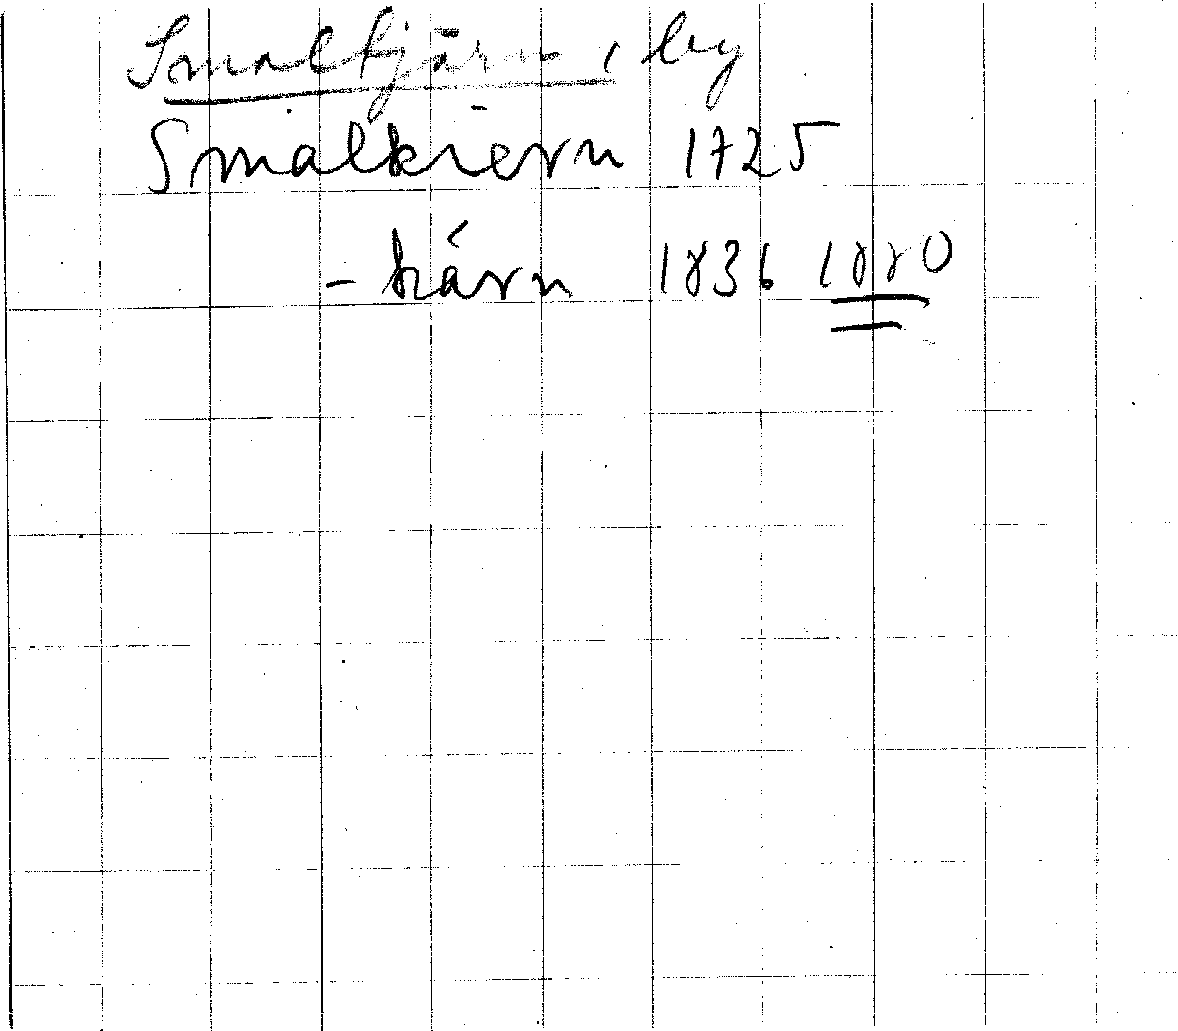 Smaltjärn, by
Smalkiern 1725
- kärn 1836 1880